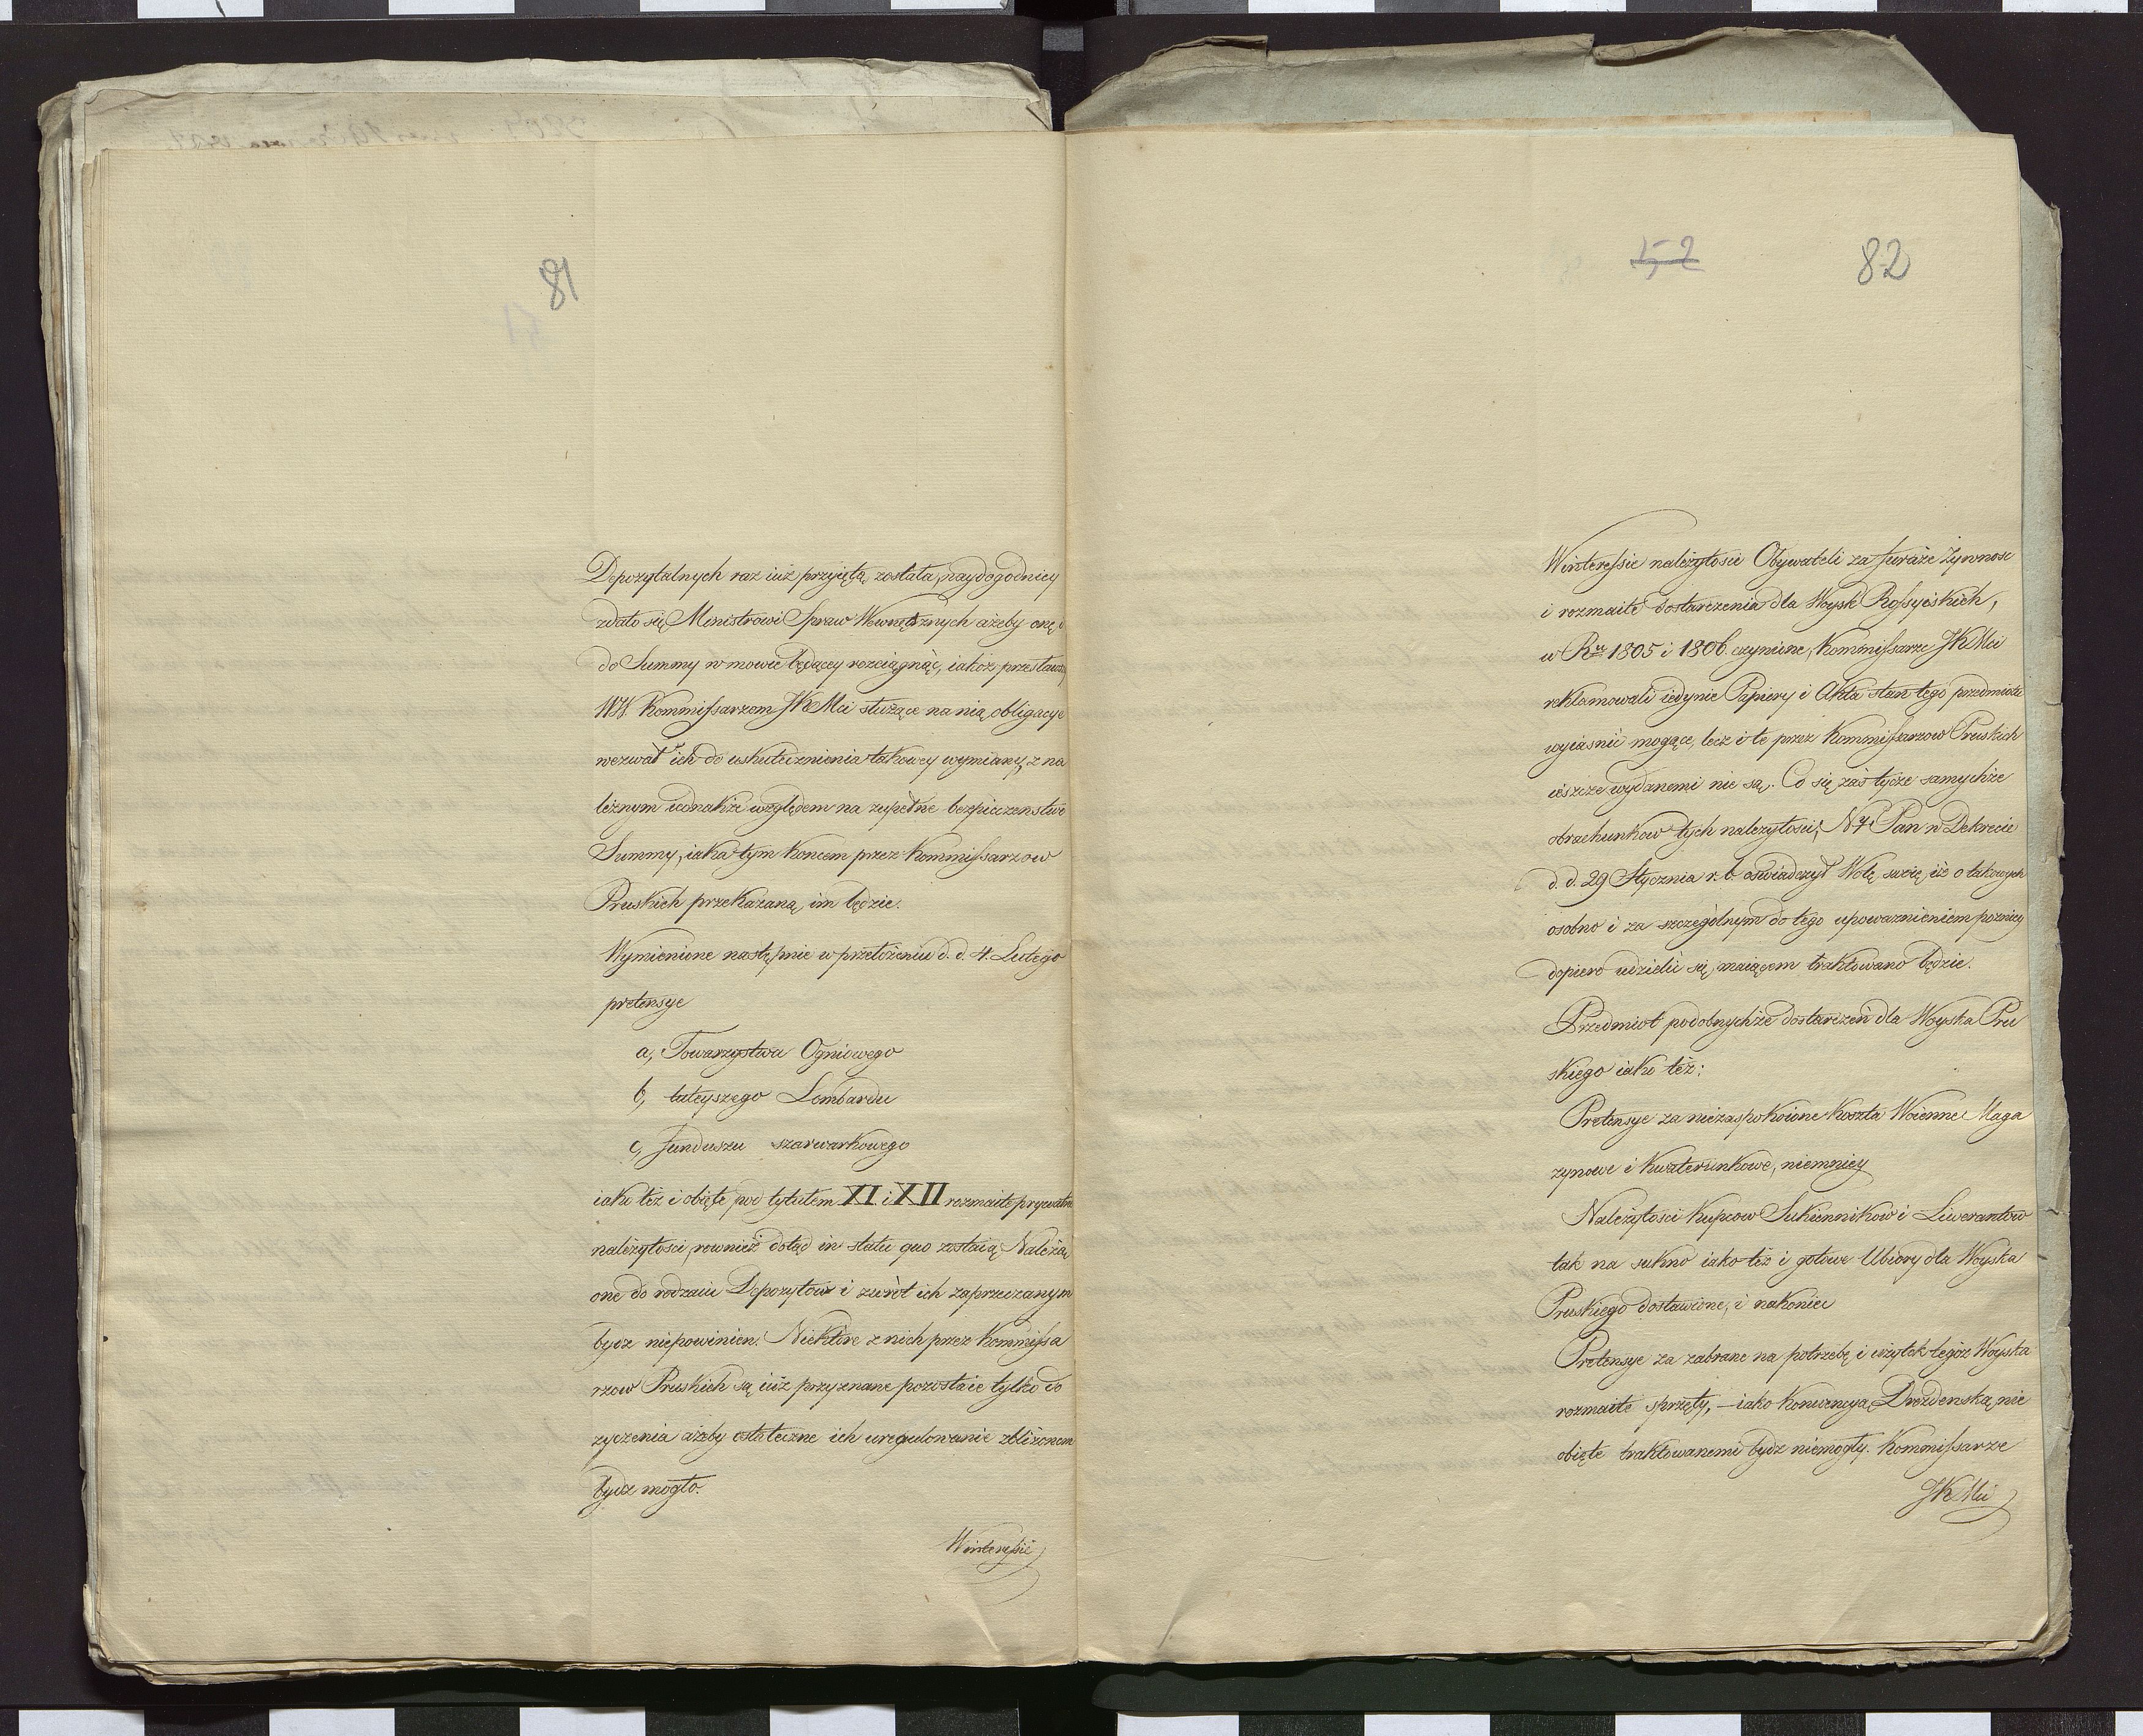 81
Depozytalnych raz iuż przyięta została, naydogodniey
zdało się Ministrowi Spraw Wewnętrznych ażeby onę i
do Summy w mowie będącey rozciągnąć, iakoż przesławszy
WW. Kommissarzom JKMci służące na nią obligacye
wezwał ich do uskutecznienia takowey wymiany, z na
leżnym iednakże względem na zupełne bezpieczenstwo
Summy, iaka tym koncem przez Kommissarzow
Pruskich przekazaną im będzie.
Wymienione następnie w przełożeniu d. d. 4. Lutego
pretensye
a, Towarzystwa Ogniowego
b, tuteyszego Lombardu
c, funduszu szarwarkowego
iako też i obięte pod tytułem XI. i XII rozmaite prywatne
należytosci, rownież dotąd in statu quo zostaią. Należą
one do rodzaiu Depozytow i zwrot ich zaprzeczanym
bydz niepowinien. Niektóre z nich przez Kommissa
rzow Pruskich są iuż przyznane pozostaie tylko do
zyczenia ażeby ostateczne ich uregulowanie zbliżonem
bydz mogło.
Winteressie
52 82
Winteressie należytosci Obywateli za furaże żywnosc
i rozmaite dostarczenia dla Woysk Rossyiskich,
w Ru 1805 i 1806. czynione, Kommissarze JKMci
reklamowali iedynie Papiery i Akta stan tego przedmiotu
wyiasnic mogące, lecz i te przez Kommissarzow Pruskich
ieszcze wydanemi nie są. Co się zaś tycze samychże
obrachunkow tych należytosci, NJ. Pan w Dekrecie
d. d. 29 Stycznia r. b. oswiadczył Wolę swoię, iż o takowych
osobno i za szczególnym do tego upoważnieniem pozniey
dopiero udzielić się maiącem traktowano będzie.
Przedmiot podobnychże dostarczeń dla Woyska Pru
skiego iako też:
Pretensye za niezaspokoione koszta Woienne Maga
zynowe i kwaterunkowe, niemniey
Należytosci kupcow Sukiennikow i Liwerantow
tak na sukno iako też i gotowe Ubiory dla Woyska
Pruskiego dostawione, i nakoniec
Pretensye za zabrane na potrzebę i użytek tegóż Woyska
rozmaite sprzęty, – iako konwencyą Drezdenską nie
obięte traktowanemi bydz niemogły. Kommissarze
JKMci